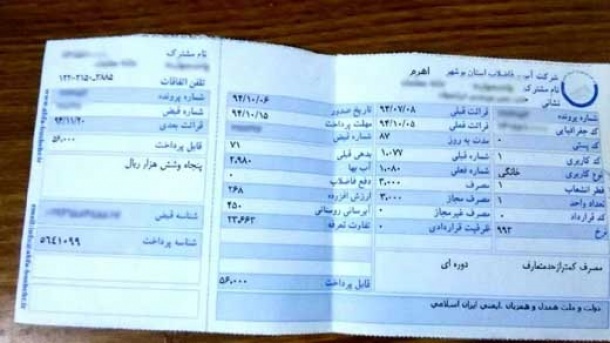 شرکت آب و فاضلاب استان بوشهر
اهرم
نام مشترک
نشانی
شماره پرونده
کد جغرافیایی
کد پستی
کد کاربری ۱
نوع کاربری خانگی
قطر انشعاب ۱
تعداد واحد ۱
کد قرارداد ۰
نرخ ۹۹۳
قرائت قبلی ۹۴/۰۷/۰۸
قرائت فعلی ۹۴/۱۰/۰۵
مدت به روز ۸۷
شماره قبلی ۱,۰۷۷
شماره فعلی ۱,۰۸۰
مصرف ۳,۰۰۰
مصرف مجاز ۳,۰۰۰
مصرف غیرمجاز ۰
ظرفیت قراردادی ۰
تاریخ صدور ۹۴/۱۰/۰۶
مهلت پرداخت ۹۴/۱۰/۱۵
شماره قبض
بدهی قبلی ۷۱
آب بها ۲,۹۸۰
دفع فاضلاب ۰
ارزش افزوده ۲۶۸
آبرسانی روستائی ۴۵۰
تفاوت تعرفه ۲۳,۶۶۳
قابل پرداخت ۵۶,۰۰۰
مصرف کمتر از حد متعارف
دوره ای
دولت و ملت همدل و همزبان
ایمنی ایران اسلامی
نام مشترک
تلفن اتفاقات ۳۸۸۵-۳۱۵۰-۱۲۲
شماره پرونده
شماره قبض
قرائت بعدی ۹۴/۱۱/۲۰
قابل پرداخت ۵۶,۰۰۰
پنجاه وشش هزار ریال
شناسه قبض
شناسه پرداخت ۵۶۴۱۰۹۹